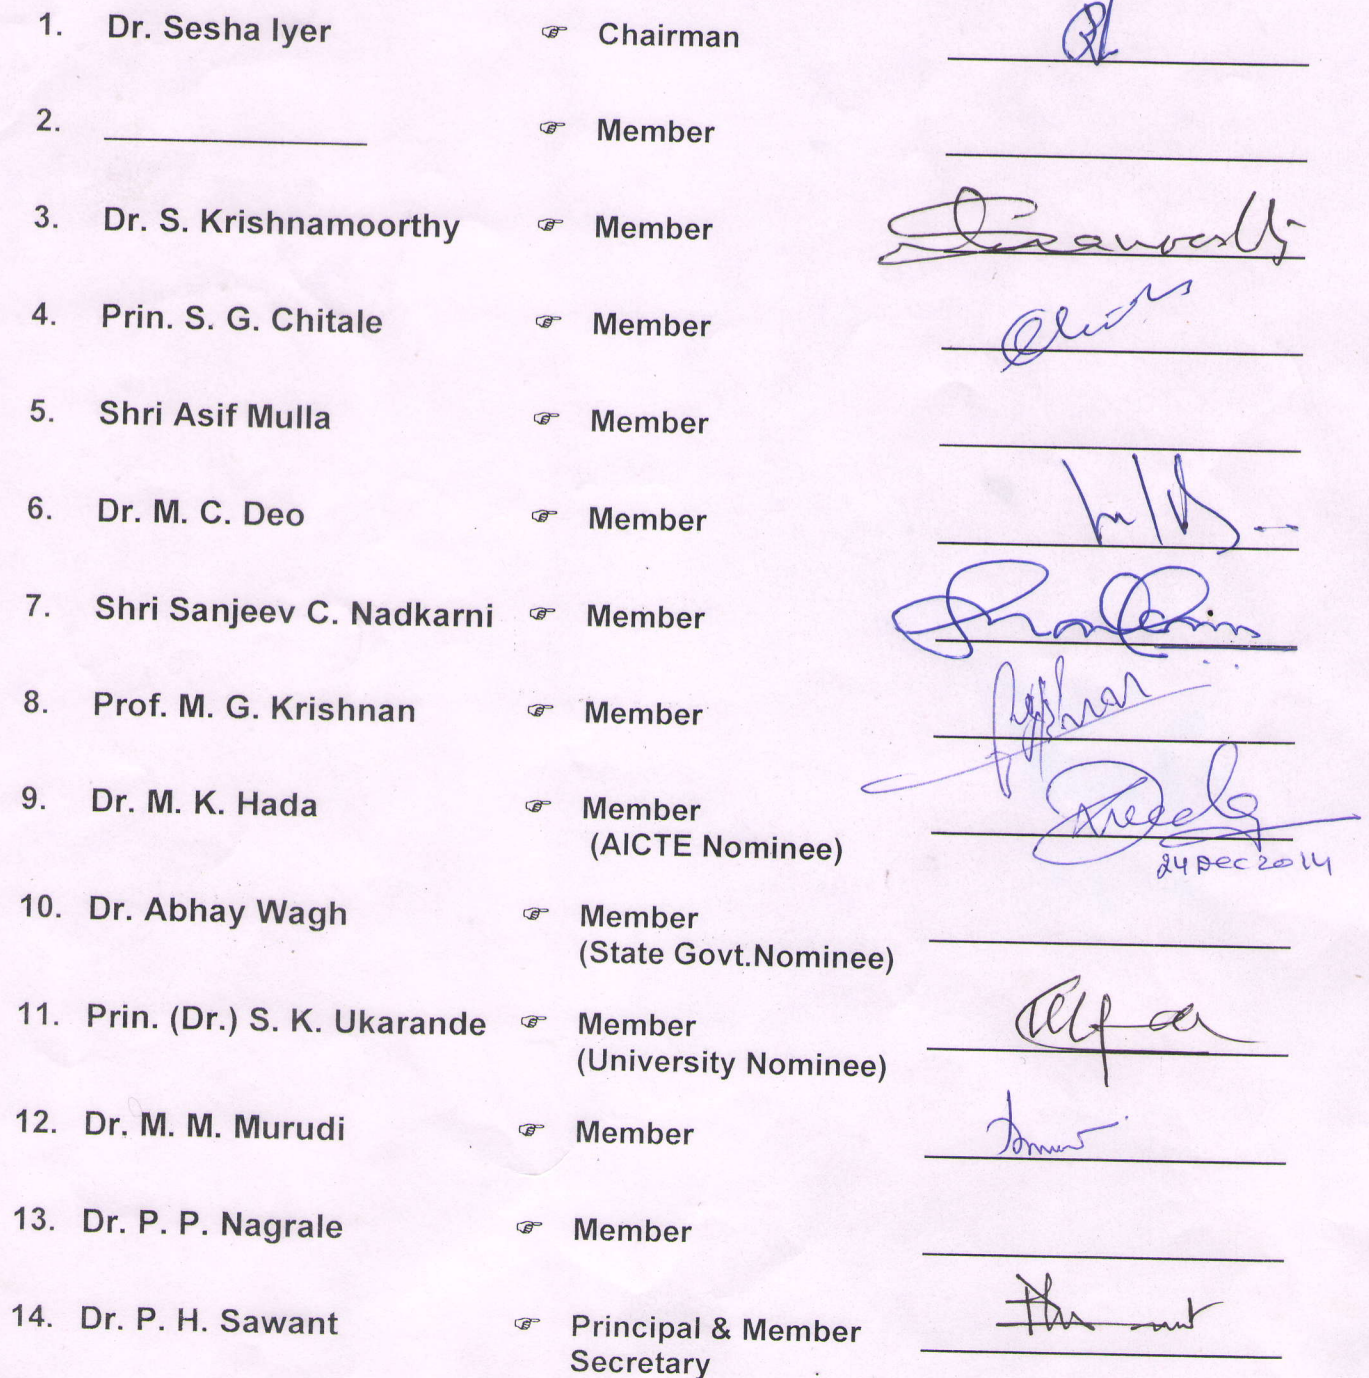 1. Dr. Sesha Iyer ☞ Chairman
2. ☞ Member
3. Dr. S. Krishnamoorthy ☞ Member
4. Prin. S. G. Chitale ☞ Member
5. Shri Asif Mulla ☞ Member
6. Dr. M. C. Deo ☞ Member
7. Shri Sanjeev C. Nadkarni ☞ Member
8. Prof. M. G. Krishnan ☞ Member
9. Dr. M. K. Hada ☞ Member
(AICTE Nominee)
24 DEC 2014
10. Dr. Abhay Wagh ☞ Member
(State Govt.Nominee)
11. Prin. (Dr.) S. K. Ukarande ☞ Member
(University Nominee)
12. Dr. M. M. Murudi ☞ Member
13. Dr. P. P. Nagrale ☞ Member
14. Dr. P. H. Sawant ☞ Principal & Member
Secretary